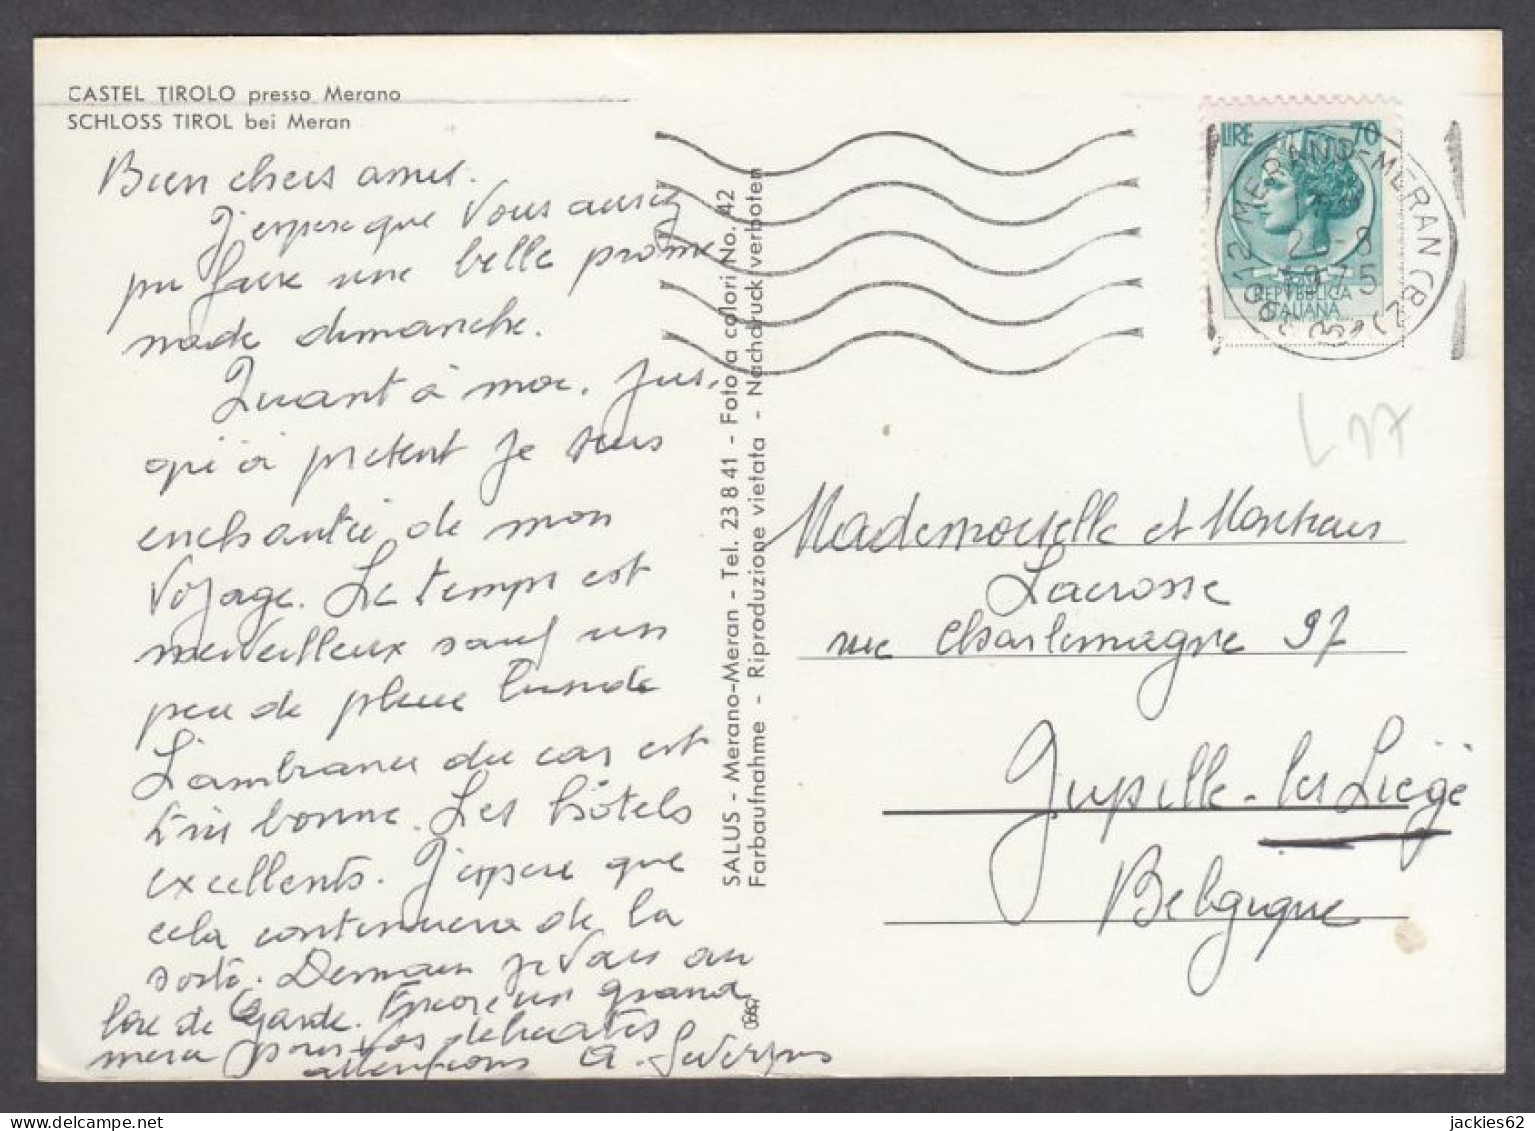 CASTEL TIROLO presso Merano
SCHLOSS TIROL bei Meran
Bien chers amis.
J'espère que vous aussi
pu faire une belle prome
nade dimanche.
Quant à moi, jus-
qu'à présent je suis
enchantée de mon
voyage. Le temps est
merveilleux sauf un
peu de pluie lundi
L'ambiance du car est
très bonne. Les hôtels
excellents. J'espère que
cela continuera de la
sorte. Demain je vais au
lac de Garde. Encore un grand
merci pour vos délicates
attentions A. Severyns
SALUS - Merano-Meran - Tel. 23 8 41 - Foto a colori No. 42
Farbaufnahme - Riproduzione vietata - Nachdruck verboten
LIRE 70
REPVBBLICA
ITALIANA
39012 MERANO-MERAN (BZ)
-8
1975
L 17
Mademoiselle et Monsieur
Lacrosse
rue Charlemagne 97
Jupille-les Liège
Belgique
jackies62